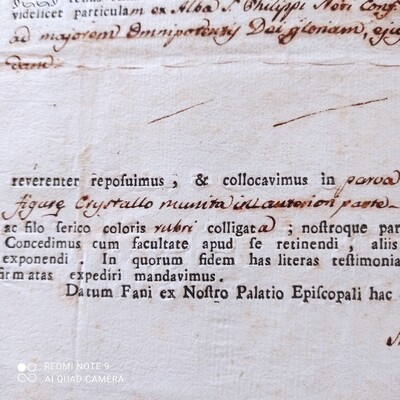 videlicet particulam ex Alba S. Philippi Neri Conf
ad majorem Omnipotentis Dei gloriam, eju
reverenter reposuimus, & collocavimus in parva
figuræ Crystallo munita in anteriori parte
ac filo serico coloris rubri colligata ; nostroque par
Concedimus cum facultate apud se retinendi, aliis
exponendi. In quorum fidem has literas testimonia
firmatas expediri mandavimus.
Datum Fani ex Nostro Palatio Episcopali hac
REDMI NOTE 9
AI QUAD CAMERA